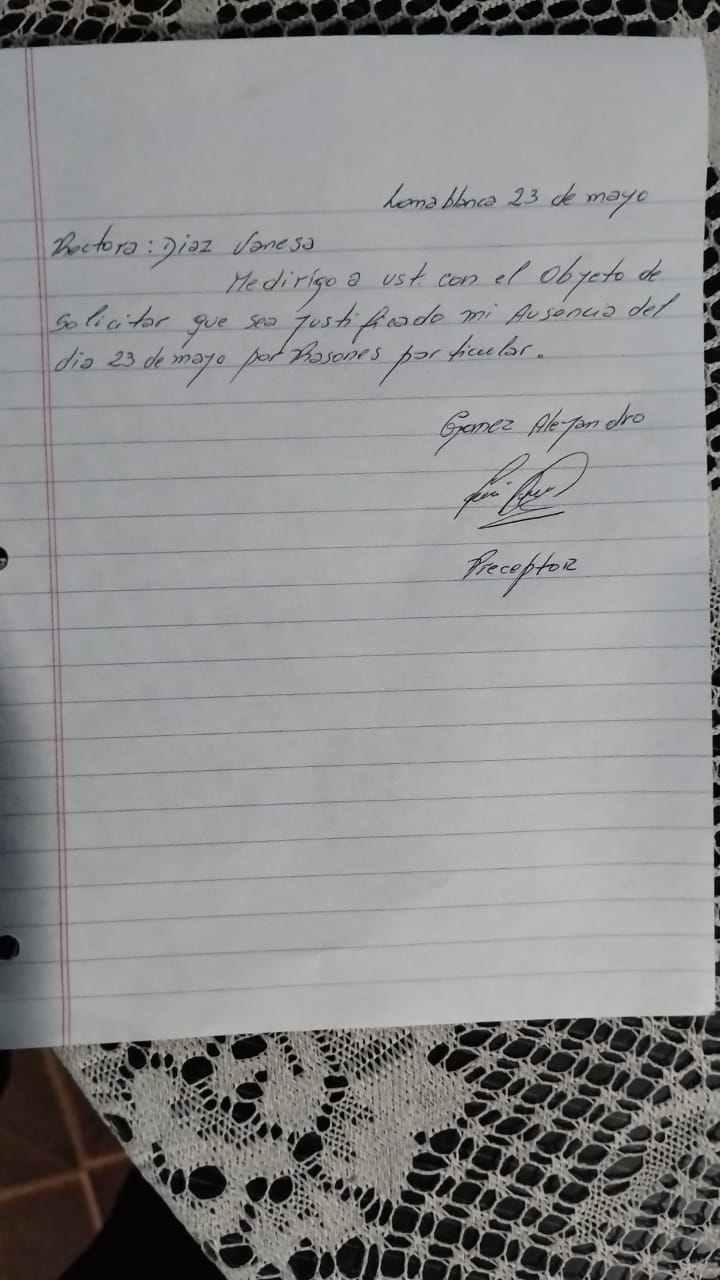 Loma blanca 23 de mayo
Rectora: Diaz Vanesa
Me dirigo a ust. con el Objeto de
Solicitar que sea justificado mi Ausencia del
dia 23 de mayo por Rasones particular.
Gomez Alejandro
Preceptor